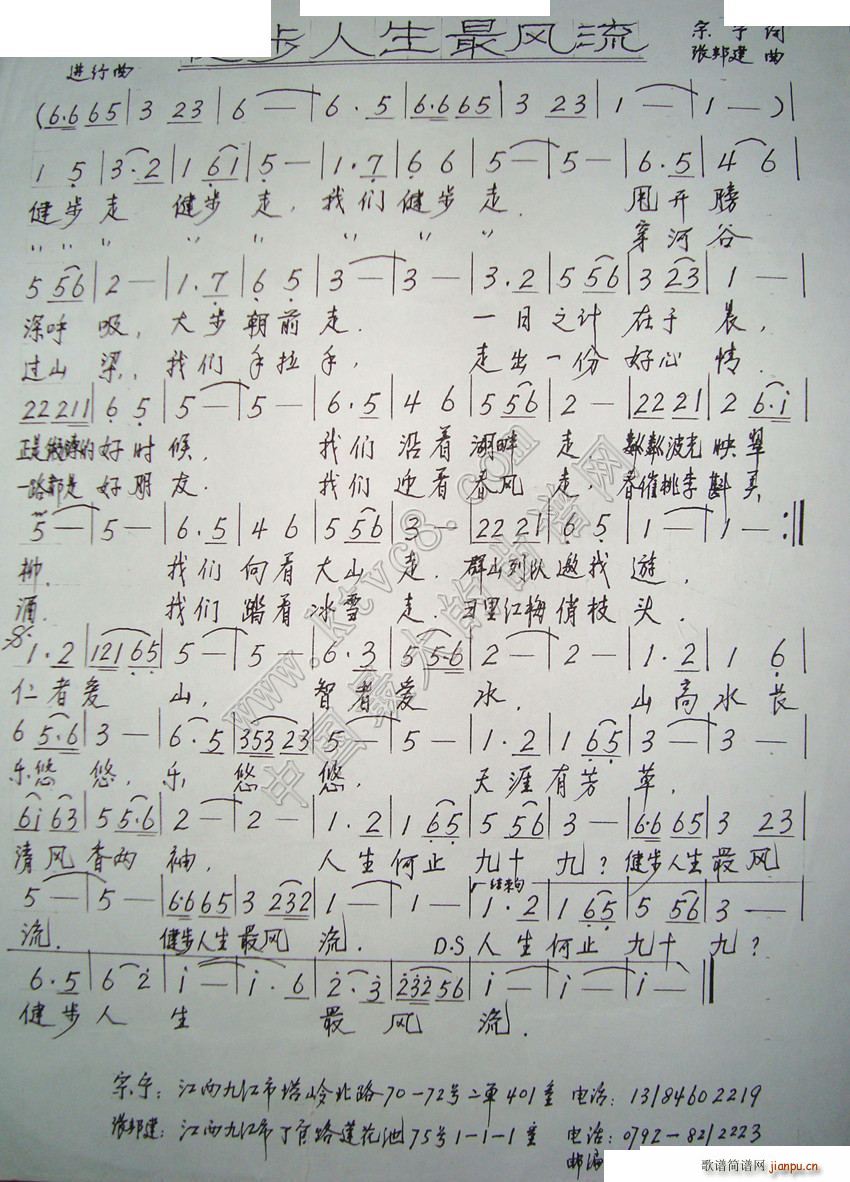 健步人生最风流
宗宁 词
进行曲
张邦建 曲
(6·6 65 | 3 23 | 6 — | 6·5 | 6·6 65 | 3 23 | 1 — | 1 — )
1 5 | 3·2 | 1 61 | 5 — | 1·7 | 6 6 | 5 — | 5 — | 6·5 | 4 6
健步走 健步走,我们健步走. 甩开膀
〃 〃 〃 〃 〃 〃 〃 穿河谷
5 56 | 2 — | 1·7 | 6 5 | 3 — | 3 — | 3·2 | 5 56 | 3 23 | 1 —
深呼吸,大步朝前走. 一日之计在于晨,
过山梁,我们手拉手, 走出一份好心情.
22 211 | 6 5 | 5 — | 5 — | 6·5 | 4 6 | 5 56 | 2 — | 22 21 | 2 6·i
正是锻炼的好时候, 我们沿着湖畔走. 粼粼波光映翠
一路都是好朋友. 我们迎着春风走. 春催桃李斟美
5 — | 5 — | 6·5 | 4 6 | 5 56 | 3 — | 22 21 | 6 5 | 1 — | 1 — :‖
柳. 我们向着大山走. 群山列队邀我遊,
酒. 我们踏着冰雪走. 里红梅俏枝头.
1·2 | 121 65 | 5 — | 5 — | 6·3 | 5 5·6 | 2 — | 2 — | 1·2 | 1 6
仁者爱山, 智者爱水, 山高水长
6 5·6 | 3 — | 6·5 | 353 23 | 5 — | 5 — | 1·2 | 1 65 | 3 — | 3 —
乐悠悠,乐悠悠. 天涯有芳草,
6i 63 | 5 5·6 | 2 — | 2 — | 1·2 | 1 65 | 5 56 | 3 — | 6·6 65 | 3 23
清风香两袖, 人生何止九十九?健步人生最风
结束句
5 — | 5 — | 6·6 65 | 3 232 | 1 — | 1 — | 1·2 | 1 65 | 5 56 | 3 —
流. 健步人生最风流. D.S 人生何止九十九?
6·5 | 6 2 | i — | i·6 | 2·3 | 232 56 | i — | i — | i — ‖
健步人生 最风流.
宗宁:江西九江市塔岭北路70-72号二单401室 电话:13184602219
张邦建:江西九江市丁官路莲花池75号1-1-1室 电话:0792-8212223
邮编
www.ktvc8.com
中国最大的曲谱网
歌谱简谱网 jianpu.cn